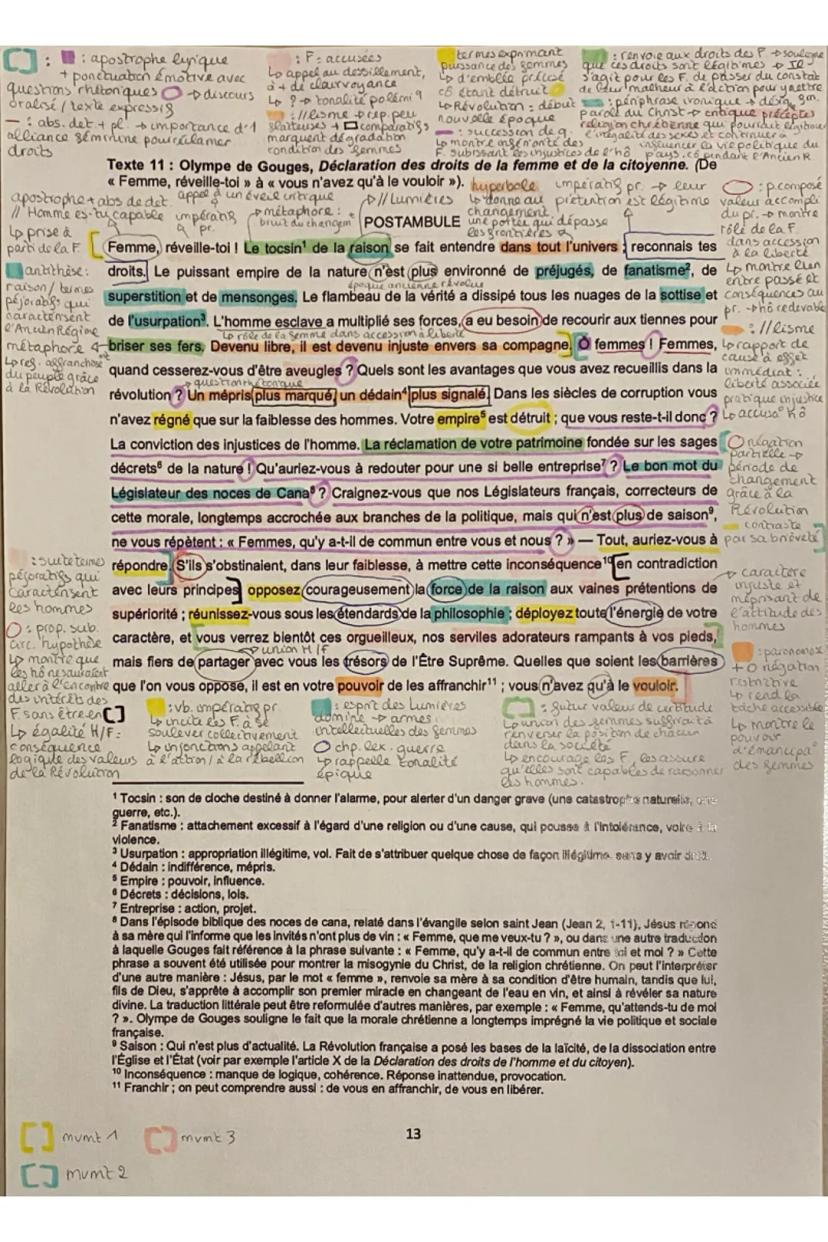 [ ] : : apostrophe lyrique
+ ponctuation émotive avec
questions rhétoriques → discours
oralisé / texte expressif
— : abs. det + pl. → importance d'1
alliance féminine pour clamer
droits
: F = accusées
↳ appel au dessillement,
à + de clairvoyance
↳ ? → tonalité polémiq
: //lisme → rep. peu
flatteuses + comparatifs
marquent dégradation
condition des femmes
termes exprimant
puissance des femmes
↳ d'emblée précisé
cô étant détruit
↳ Révolution : début
nouvelle époque
— : succession de q.
↳ montre
F. subissant les injustices de l'hô
: renvoie aux droits des F → souligne
que ces droits sont légitimes → Il
s'agit pour les F. de passer du constat
de leur malheur à l'action pour y mettre
: périphrase ironique → désigne
parole du Christ → critique préceptes
religion chrétienne qui pourrait légitimer
l'inégalité des sexes et continuer à
influencer la vie politique du
pays, cô pendant l'Ancien R
Texte 11 : Olympe de Gouges, Déclaration des droits de la femme et de la citoyenne. (De
« Femme, réveille-toi » à « vous n'avez qu'à le vouloir »).
hyperbole
↳ donne au
changement
une portée qui dépasse
les frontières
impératif pr. → leur
prétention est légitime
: p.composé
valeur accompli
du pr. → montre
rôle de la F.
dans accession
à la liberté
↳ montre lien
entre passé et
conséquences au
pr. → hô redevable
apostrophe + abs de det.
// Homme es-tu capable
↳ prise à
partie de la F.
appel à un éveil critique
impératif
pr.
→ métaphore :
bruit du changem
// Lumières
POSTAMBULE
Femme, réveille-toi ! Le tocsin¹ de la raison se fait entendre dans tout l'univers ; reconnais tes
droits. Le puissant empire de la nature n'est plus environné de préjugés, de fanatisme², de
époque ancienne révolue
superstition et de mensonges. Le flambeau de la vérité a dissipé tous les nuages de la sottise et
de l'usurpation³. L'homme esclave a multiplié ses forces, a eu besoin de recourir aux tiennes pour
↳ rôle de la femme dans accession à la liberté
briser ses fers. Devenu libre, il est devenu injuste envers sa compagne. Ô femmes ! Femmes,
quand cesserez-vous d'être aveugles ? Quels sont les avantages que vous avez recueillis dans la
→ question rhétorique
révolution ? Un mépris plus marqué, un dédain⁴ plus signalé. Dans les siècles de corruption vous
n'avez régné que sur la faiblesse des hommes. Votre empire⁵ est détruit ; que vous reste-t-il donc ?
La conviction des injustices de l'homme. La réclamation de votre patrimoine fondée sur les sages
décrets⁶ de la nature ! Qu'auriez-vous à redouter pour une si belle entreprise⁷ ? Le bon mot du
Législateur des noces de Cana⁸ ? Craignez-vous que nos Législateurs français, correcteurs de
cette morale, longtemps accrochée aux branches de la politique, mais qui n'est plus de saison⁹,
ne vous répètent : « Femmes, qu'y a-t-il de commun entre vous et nous ? » — Tout, auriez-vous à
répondre. S'ils s'obstinaient, dans leur faiblesse, à mettre cette inconséquence¹⁰ en contradiction
avec leurs principes, opposez courageusement la force de la raison aux vaines prétentions de
supériorité ; réunissez-vous sous les étendards de la philosophie ; déployez toute l'énergie de votre
caractère, et vous verrez bientôt ces orgueilleux, nos serviles adorateurs rampants à vos pieds,
→ union H/F
mais fiers de partager avec vous les trésors de l'Être Suprême. Quelles que soient les barrières
que l'on vous oppose, il est en votre pouvoir de les affranchir¹¹ ; vous n'avez qu'à le vouloir.
antithèse :
raison / termes
péjoratifs qui
caractérisent
l'Ancien Régime
métaphore
↳ rep. affranchissmt
du peuple grâce
à la Révolution
: //lisme
↳ rapport de
cause à effet
immédiat :
liberté associée
pratique injustice
↳ accusa° hô
négation
partielle →
période de
changement
grâce à la
Révolution
— contraste
par sa brièveté
→ caractère
injuste et
méprisant de
l'attitude des
hommes
: paronomase
+ négation
restrictive
↳ rend la
tâche accessible
↳ montre le
pouvoir
d'émancipa°
des femmes
: suite termes
péjoratifs qui
caractérisent
les hommes
: prop. sub.
circ. hypothèse
↳ montre que
les hô ne sauraient
aller à l'encontre
des intérêts des
F. sans être en [ ]
↳ égalité H/F :
conséquence
logique des valeurs
de la Révolution
: vb. impératif pr.
↳ incite les F. à se
soulever collectivement
↳ injonctions appelant
à l'action / à la rébellion
: esprit des Lumières
domine → armes
intellectuelles des femmes
chp. lex. guerre
↳ rappelle tonalité
épique
[ ] : futur valeur de certitude
↳ union des femmes suffirait à
renverser la position de chacun
dans la société
↳ encourage les F, les assure
qu'elles sont capables de raisonner
les hommes.
¹ Tocsin : son de cloche destiné à donner l'alarme, pour alerter d'un danger grave (une catastrophe naturelle, une
guerre, etc.).
² Fanatisme : attachement excessif à l'égard d'une religion ou d'une cause, qui pousse à l'intolérance, voire à la
violence.
³ Usurpation : appropriation illégitime, vol. Fait de s'attribuer quelque chose de façon illégitime, sans y avoir droit.
⁴ Dédain : indifférence, mépris.
⁵ Empire : pouvoir, influence.
⁶ Décrets : décisions, lois.
⁷ Entreprise : action, projet.
⁸ Dans l'épisode biblique des noces de cana, relaté dans l'évangile selon saint Jean (Jean 2, 1-11), Jésus répond
à sa mère qui l'informe que les invités n'ont plus de vin : « Femme, que me veux-tu ? », ou dans une autre traduction
à laquelle Gouges fait référence à la phrase suivante : « Femme, qu'y a-t-il de commun entre toi et moi ? » Cette
phrase a souvent été utilisée pour montrer la misogynie du Christ, de la religion chrétienne. On peut l'interpréter
d'une autre manière : Jésus, par le mot « femme », renvoie sa mère à sa condition d'être humain, tandis que lui,
fils de Dieu, s'apprête à accomplir son premier miracle en changeant de l'eau en vin, et ainsi à révéler sa nature
divine. La traduction littérale peut être reformulée d'autres manières, par exemple : « Femme, qu'attends-tu de moi
? ». Olympe de Gouges souligne le fait que la morale chrétienne a longtemps imprégné la vie politique et sociale
française.
⁹ Saison : Qui n'est plus d'actualité. La Révolution française a posé les bases de la laïcité, de la dissociation entre
l'Église et l'État (voir par exemple l'article X de la Déclaration des droits de l'homme et du citoyen).
¹⁰ Inconséquence : manque de logique, cohérence. Réponse inattendue, provocation.
¹¹ Franchir ; on peut comprendre aussi : de vous en affranchir, de vous en libérer.
[ ] mvmt 1 [ ] mvmt 3
[ ] mvmt 2
13